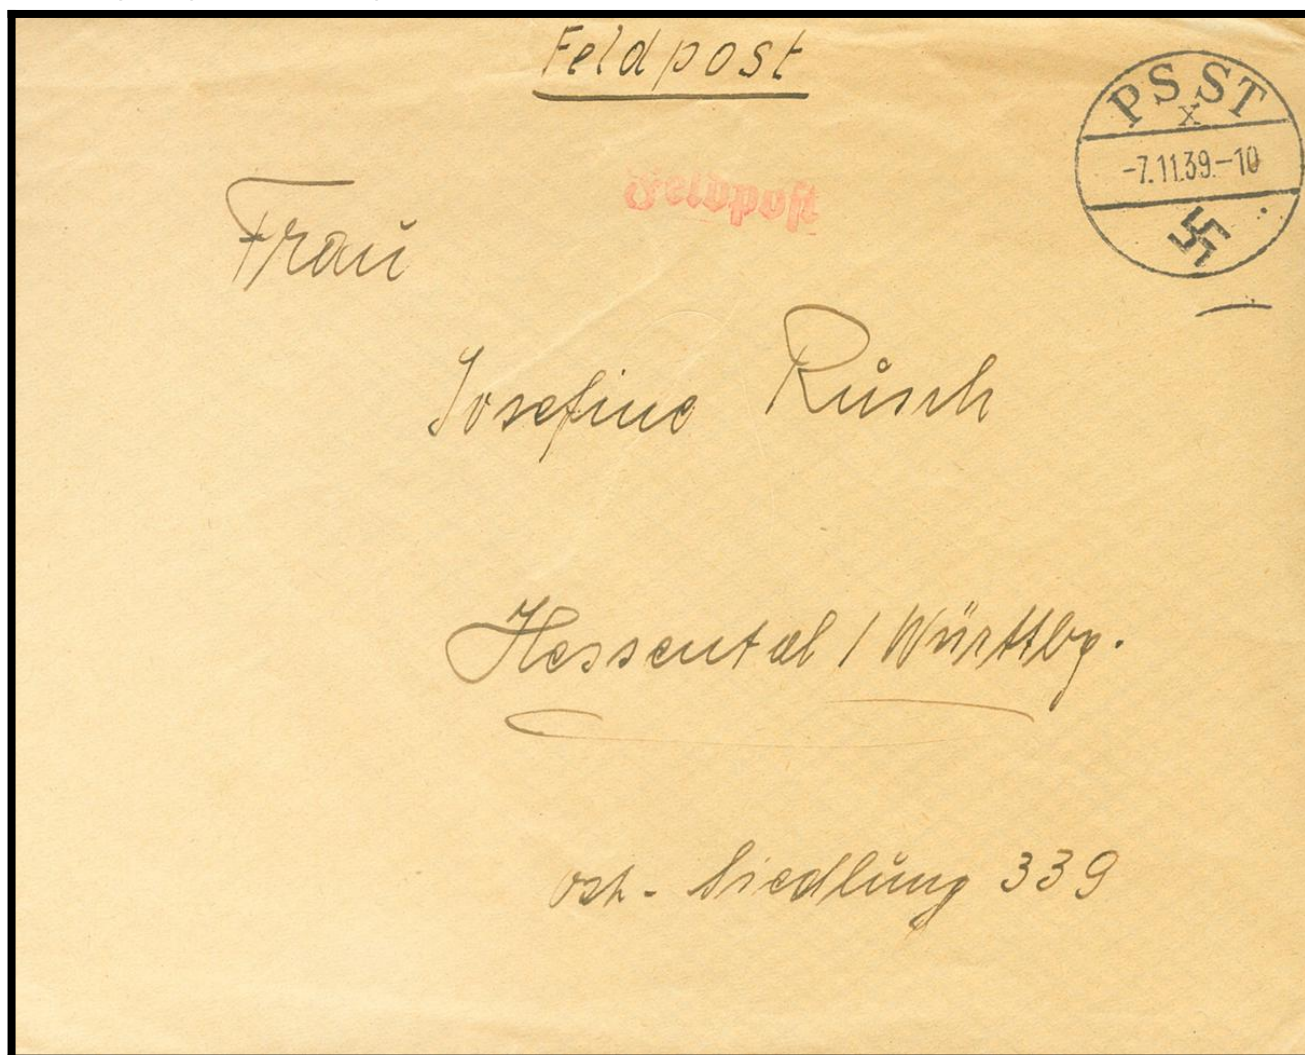 Feldpost
PSST
x
-7.11.39.-10
Feldpost
Frau
Josefine Rusch
Hessental / Württbg.
ost - Siedlung 339